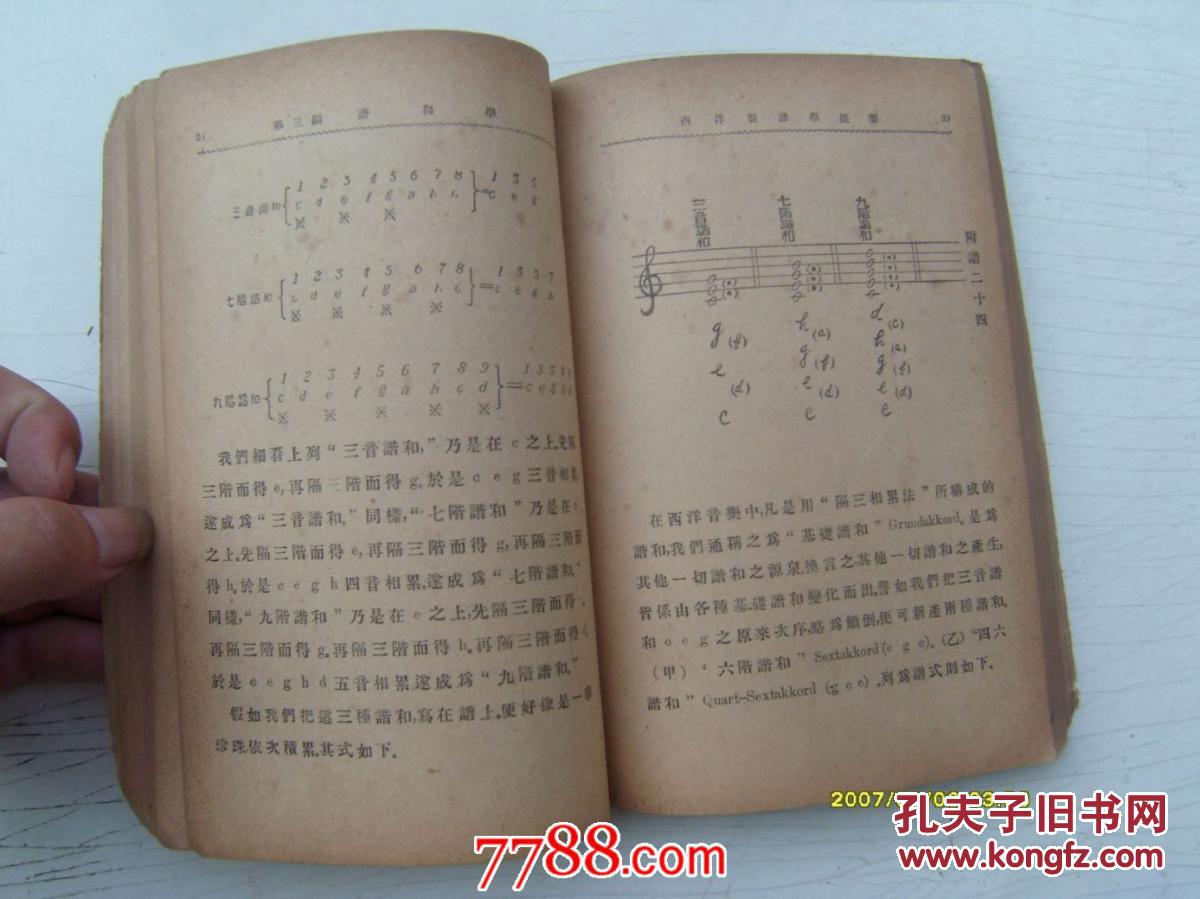 學 和 諧 編三第
三音諧和 { 1 2 3 4 5 6 7 8 } = 1 3 5
c d e f g a h c c e g
※ ※ ※
七階諧和 { 1 2 3 4 5 6 7 8 } = 1 3 5 7
c d e f g a h c c e g h
※ ※ ※ ※
九階諧和 { 1 2 3 4 5 6 7 8 9 } = 1 3 5 7
c d e f g a h c d c e g h
※ ※ ※ ※ ※
我們細看上列“三音諧和,”乃是在c之上,先隔
三階而得e,再隔三階而得g。於是c e g三音相累,
遂成爲“三音諧和。”同樣,“七階諧和”乃是在c
之上,先隔三階而得e,再隔三階而得g,再隔三階而
得h。於是c e g h四音相累,遂成爲“七階諧和。”
同樣,“九階諧和”乃是在c之上,先隔三階而得
再隔三階而得g。再隔三階而得h。再隔三階而得
於是c e g h d五音相累,遂成爲“九階諧和。”
假如我們把這三種諧和,寫在譜上。便好像是一串
珍珠依次積累。其式如下。
西洋製譜學提要
附譜二十四
三音諧和 七階諧和 九階諧和
d (c)
h (a) h (a)
g (f) g (f) g (f)
e (d) e (d) e (d)
c c c
在西洋音樂中,凡是用“隔三相累法”所構成的
諧和,我們通稱之爲“基礎諧和”Grundakkord。是爲
其他一切諧和之源泉。換言之,其他一切諧和之產生,
皆係由各種基礎諧和變化而出。譬如我們把三音諧
和c e g之原來次序,略爲顛倒,便可新產兩種諧和。
(甲)‘六階諧和”Sextakkord(e g c)。(乙)“四六
諧和”Quart-Sextakkord (g c e)。列爲譜式則如下。
2007/
7788.com
孔夫子旧书网
www.kongfz.com